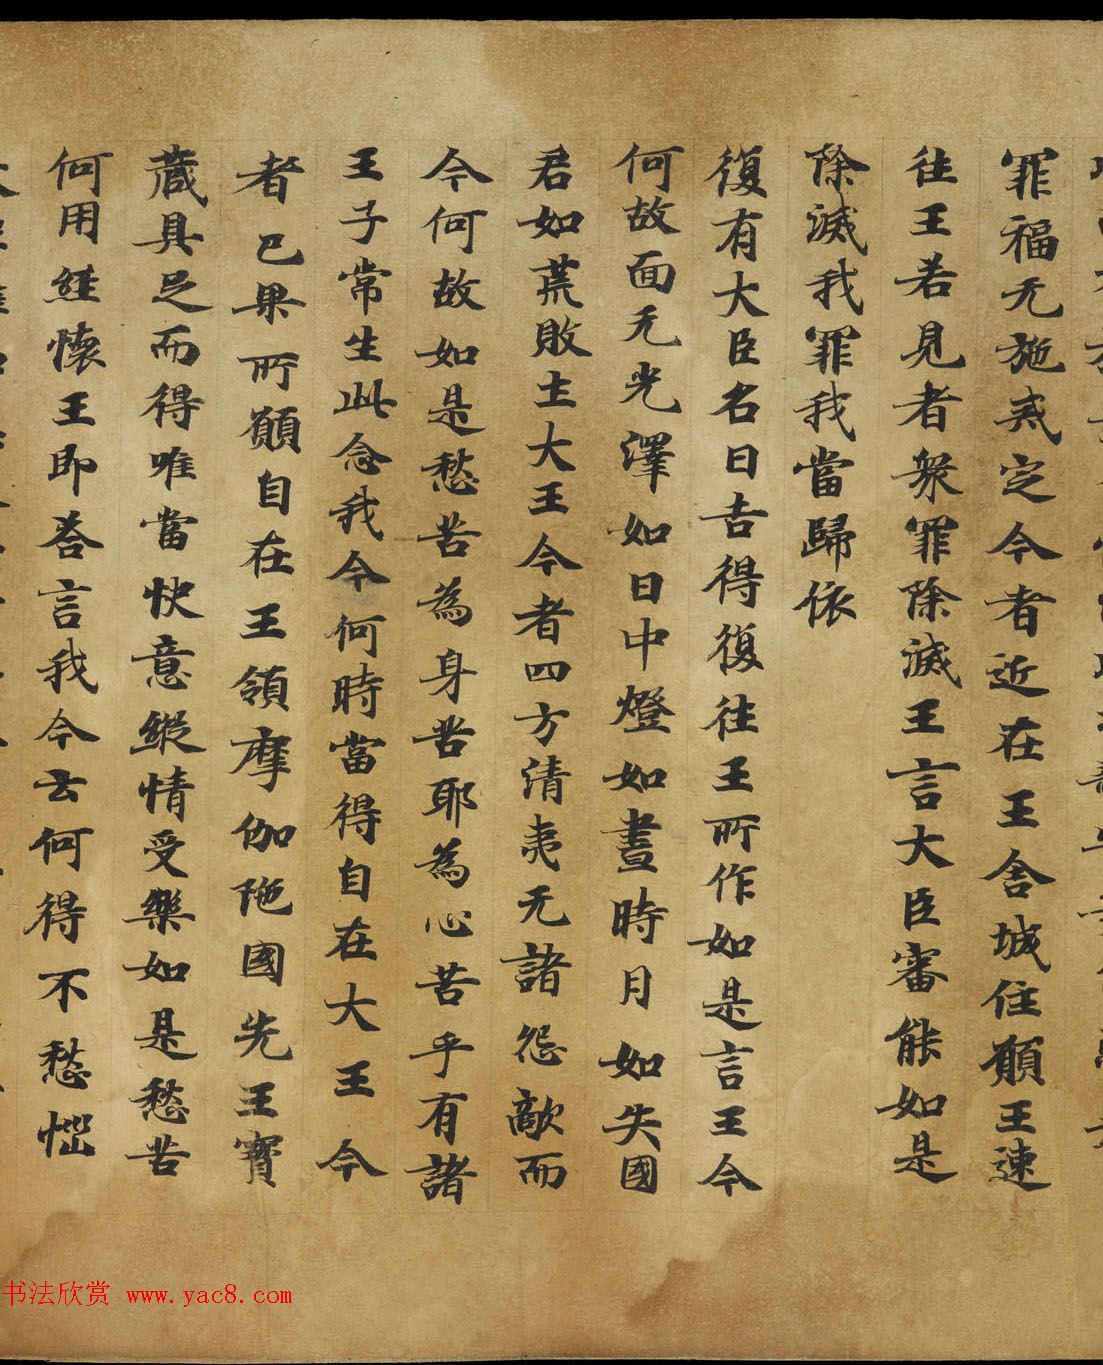 罪福无施戒定今者近在王舍城住願王速
往王若見者衆罪除滅王言大臣審能如是
除滅我罪我當歸依
復有大臣名曰吉得復往王所作如是言王今
何故面无光澤如日中燈如晝時月如失國
君如荒敗土大王今者四方清夷无諸怨敵而
今何故如是愁苦為身苦耶為心苦乎有諸
王子常生此念我今何時當得自在大王今
者已果所願自在王領摩伽陁國先王寶
藏具足而得唯當快意縱情受樂如是愁苦
何用經懷王即荅言我今云何得不愁惱
书法欣赏 www.yac8.com